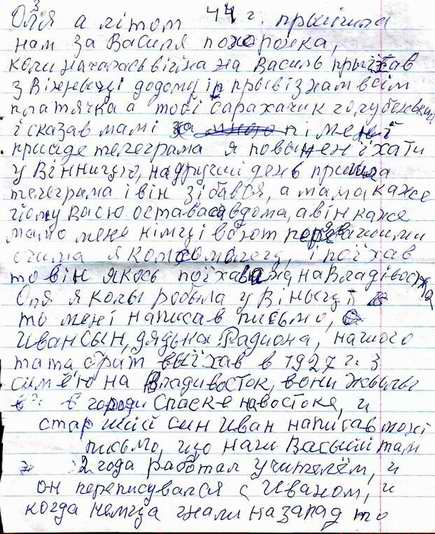 Оля а літом 44 г. прийшла
нам за Василя похоронка,
коли началась війна Василь приїхав
з Вінниці додому і привіз нам всім
платячка а тобі сарахачик голубенький
і сказав мамі за мною мені
прийде телеграма я повинен їхати
у Вінницю, на другий день прийшла
телеграма і він зібався, а мама каже
йому Васю оставайся дома, а він каже
мамо мене німці возьмут первим
я комсомолець, і поїхав
то він якось поїхав аж на Владівосток
Оля я колы робыла у Віныці
то мені написав письмо,
Иван сын, дядька Радиона, нашого
тата брат выїхав в 1927 г. з
сим'ею на Владивосток, вони жылы
в городи Спаске на востоке, и
старший син Иван написав мені
письмо, що наш Васылий там
2 года работал учителем, и
он переписувался с Иваном, и
когда немца гнали на запад то